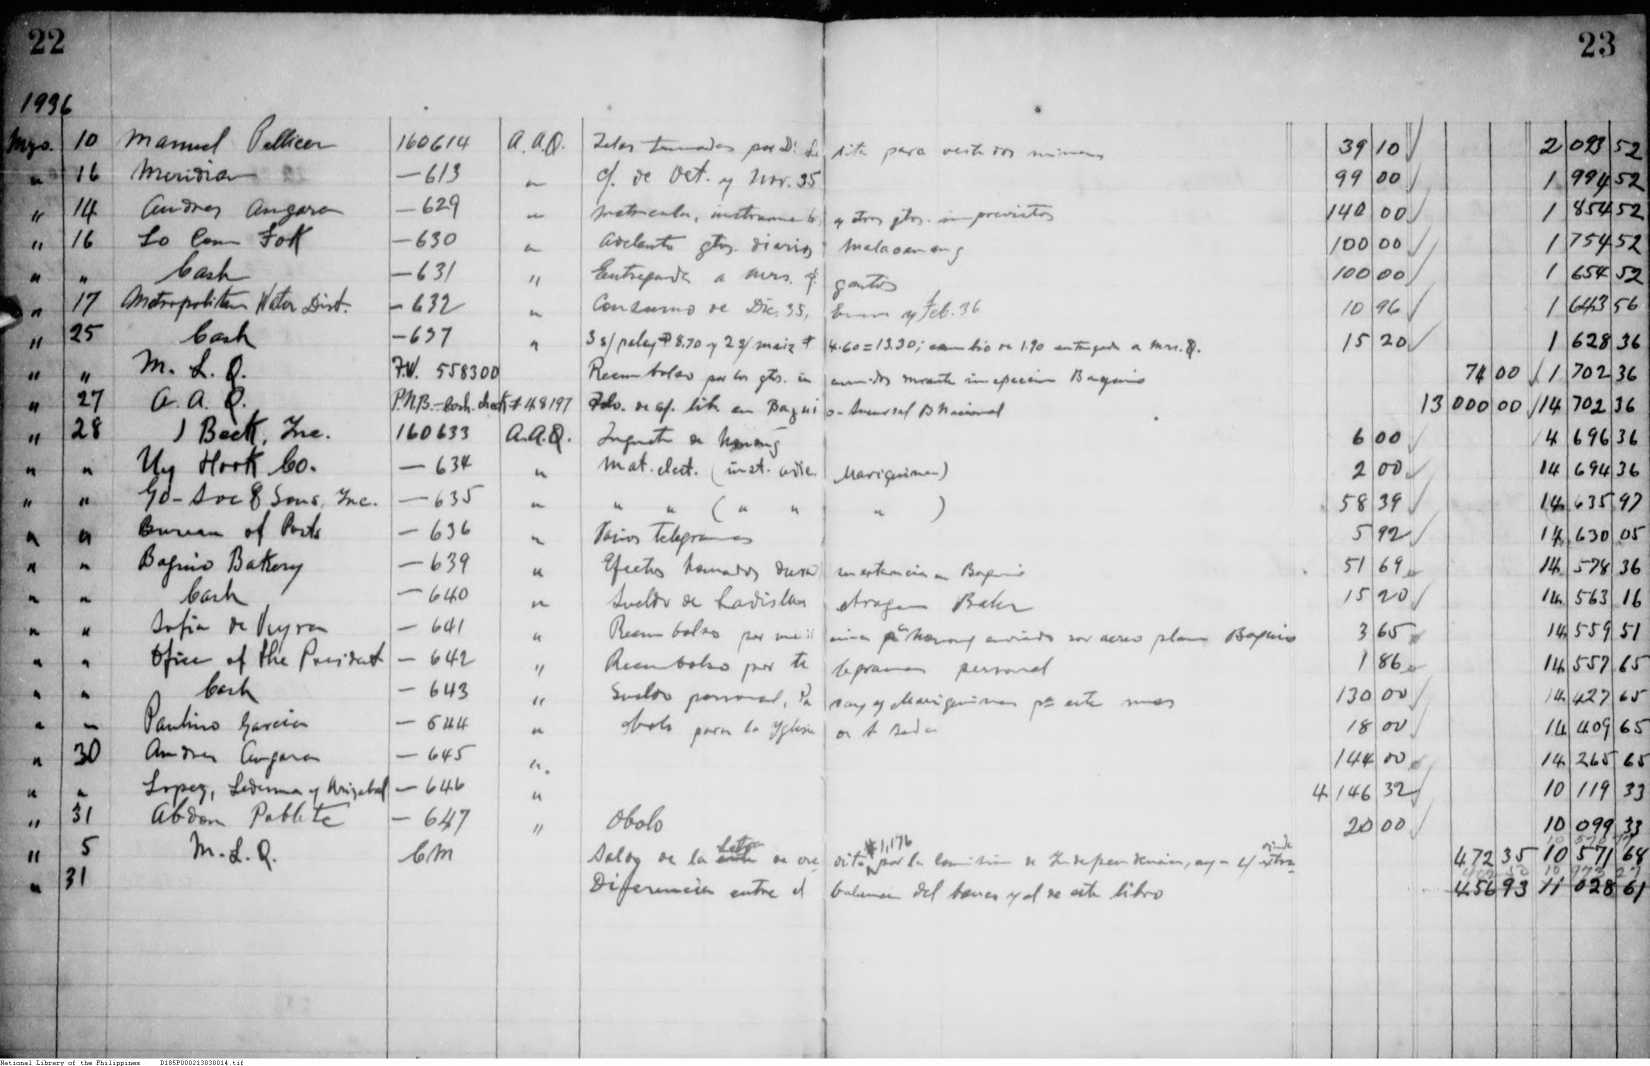 22
23
1936
Myo. 10 Manuel Pellicer 160614 A.A.Q. Telas tomadas por 39 10 2 093 52
" 16 Meridian — 613 " c/. de Oct. y Nov. 35 99 00 1 994 52
" 14 Andres Angara — 629 " Matricula, y otros gtos. imprevistos 140 00 1 854 52
" 16 Lo Fok — 630 " Adelanto gtos. diarios 100 00 1 754 52
" " Cash — 631 " Entregada a Mrs. Q. gastos 100 00 1 654 52
" 17 Metropolitan Water Dist. — 632 " Consumo de Dic. 35, Enero y Feb. 36 10 96 1 643 56
" 25 Cash — 637 " 3 s/ palay ₱ 8.70 y 2 s/ maiz ₱ 4.60 = 13.30; cambio de 1.90 entregado a Mrs. Q. 15 20 1 628 36
" " M. L. Q. 558300 Reembolso por los gtos. incurridos durante inspeccion Baguio 74 00 1 702 36
" 27 A. A. Q. P.N.B. # 48197 en Baguio - Sucursal B Nacional 13 000 00 14 702 36
" 28 Beck, Inc. 160633 A.A.Q. Juguete de Nonong 6 00 4 696 36
" " Uy Hook Co. — 634 " Mat. elect. (inst. Mariquina) 2 00 14 694 36
" " & Sons, Inc. — 635 " " " ( " " " ) 58 39 14 635 97
" " Bureau of Posts — 636 " Varios telegramas 5 92 14 630 05
" " Baguio Bakery — 639 " Efectos tomados en Baguio 51 69 14 578 36
" " Cash — 640 " Sueldo de Ladislao 15 20 14 563 16
" " Sofia de Veyra — 641 " Reembolso por aereo plano Baguio 3 65 14 559 51
" " Office of the President — 642 " Reembolso por telegramas personal 1 86 14 557 65
" " Cash — 643 " Sueldo personal, Pasay y Mariquina pa este mes 130 00 14 427 65
" " Paulino Garcia — 644 " obolo para la Yglesia 18 00 14 409 65
" 30 Andres Angara — 645 " 144 00 14 265 65
" " Lopez, Ledesma y — 646 " 4 146 32 10 119 33
" 31 Abdon Poblete — 647 " Obolo 20 00 10 099 33
" 5 M. L. Q. CM Saldo de la letra de credito #1,176 por la Comision de Independencia, 472 35 10 571 68
" 31 Diferencia entre el balance del banco y el de este libro 456 93 11 028 61
National Library of the Philippines D185P000213030014.tif